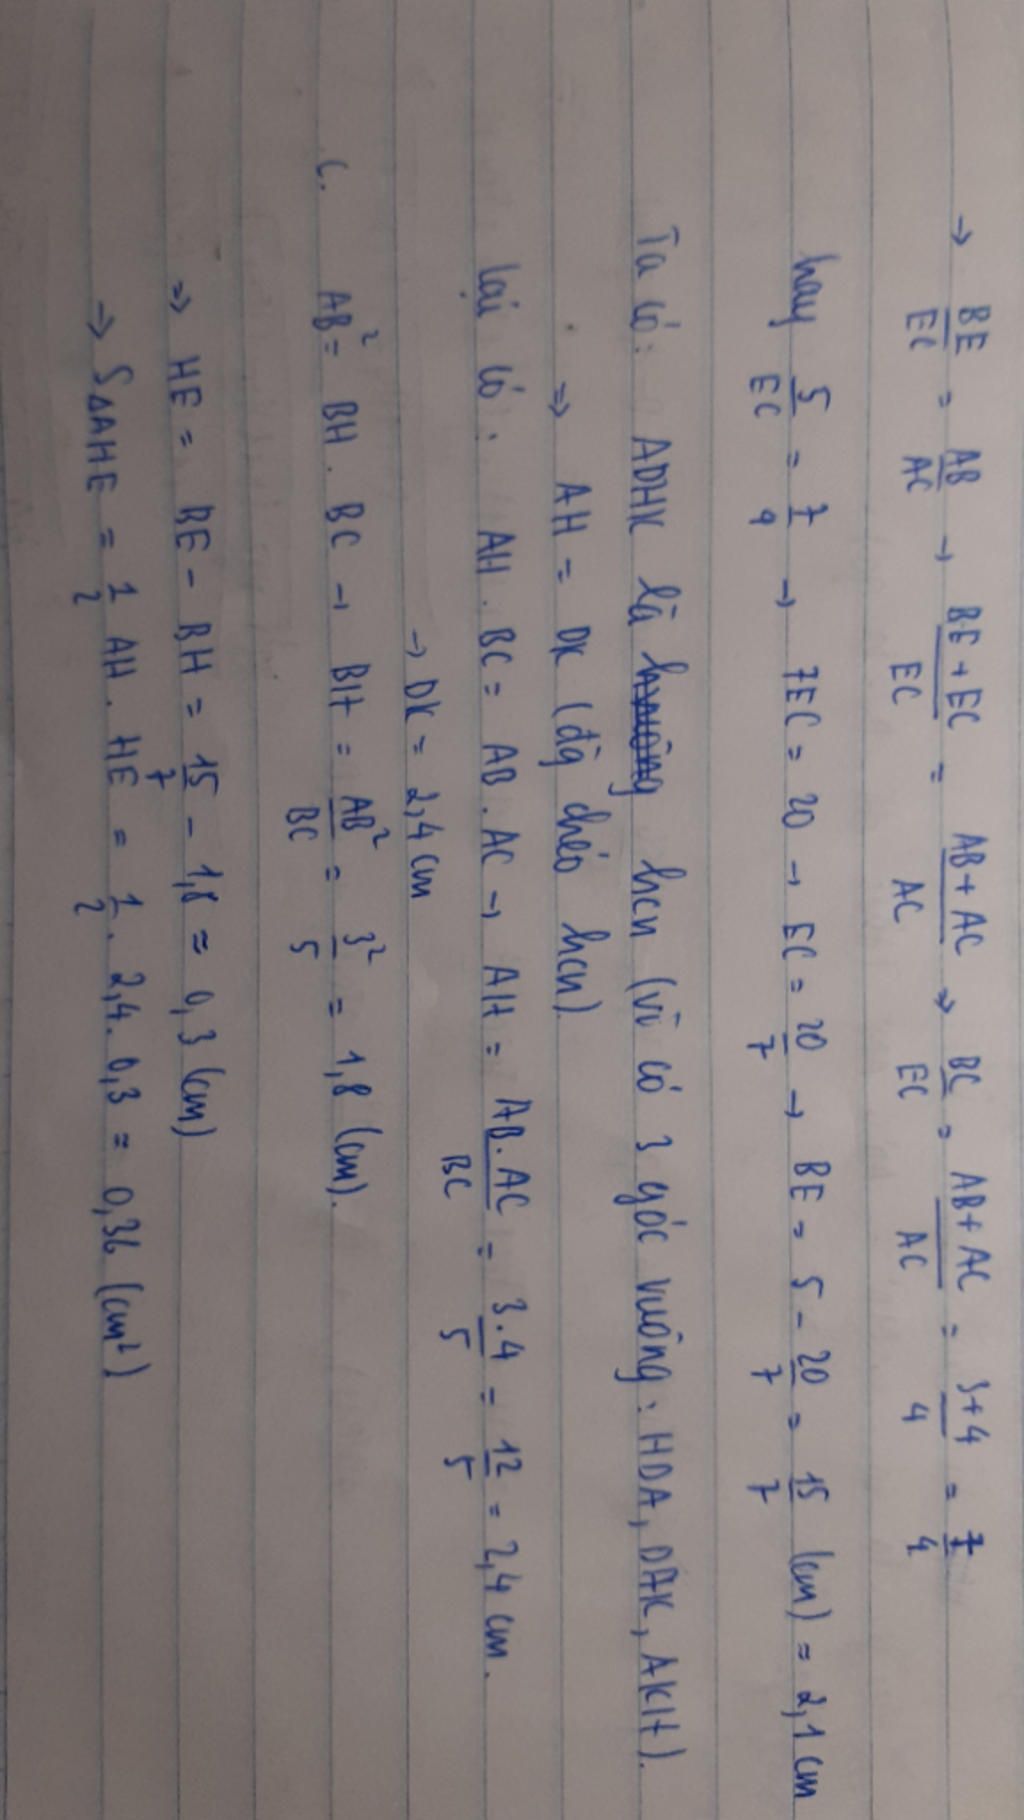 → BE/EC = AB/AC → BE + EC/EC = AB + AC/AC → BC/EC = AB + AC/AC = 3+4/4 = 7/4
hay 5/EC = 7/4 → 7EC = 20 → EC = 20/7 → BE = 5 - 20/7 = 15/7 (cm) = 2,1 cm
Ta có: ADHK là hcn (vì có 3 góc vuông: HDA, DAK, AKH).
⇒ AH = DK (đg chéo hcn).
lại có: AH . BC = AB . AC → AH = AB . AC/BC = 3.4/5 = 12/5 = 2,4 cm.
→ DK = 2,4 cm
c. AB² = BH . BC → BH = AB²/BC = 3²/5 = 1,8 (cm).
⇒ HE = BE - BH = 15/7 - 1,8 = 0,3 (cm)
→ SΔAHE = 1/2 AH . HE = 1/2 . 2,4 . 0,3 = 0,36 (cm²)